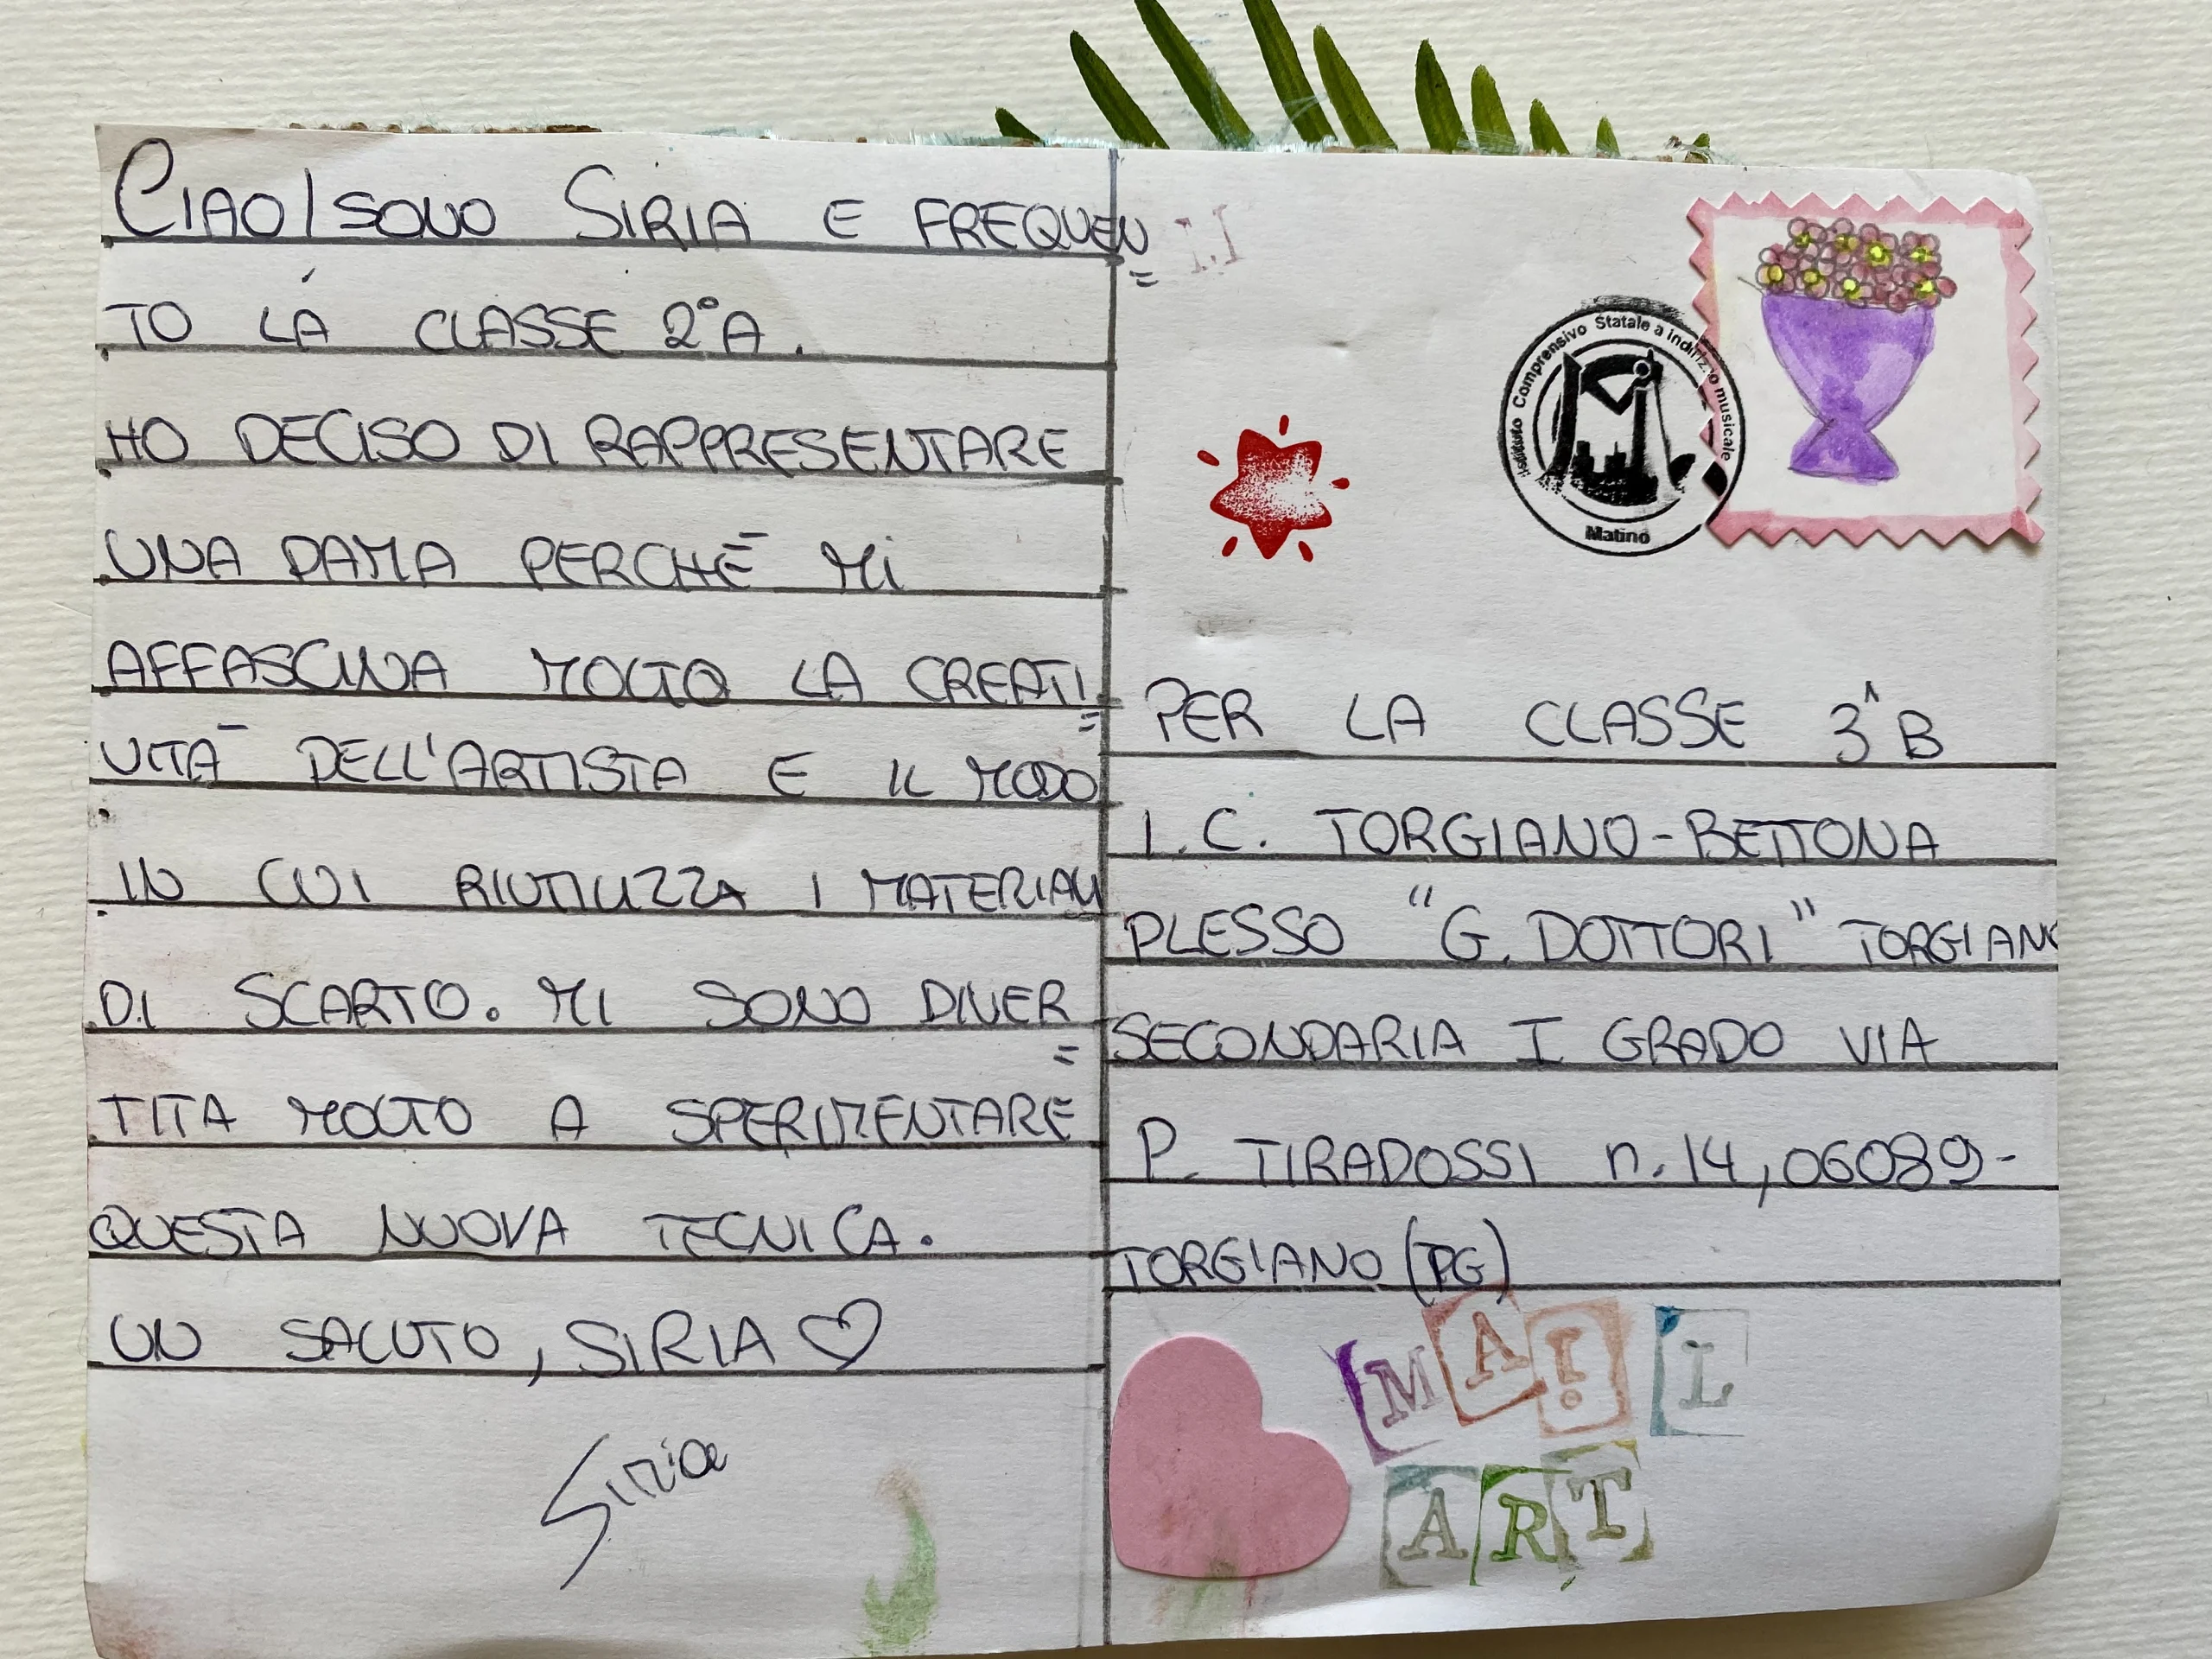 CIAO/SONO SIRIA E FREQUEN=
TO LÀ CLASSE 2°A.
HO DECISO DI RAPPRESENTARE
UNA DAMA PERCHÉ Mi
AFFASCINA MOLTO LA CREATI=
VITÀ DELL'ARTISTA E IL MODO
IN CUI RIUTILIZZA I MATERIALI
DI SCARTO. MI SONO DIVER=
TITA MOLTO A SPERIMENTARE
QUESTA NUOVA TECNICA.
UN SALUTO, SIRIA ♡
Siria
Istituto Comprensivo Statale a indirizzo musicale
Matino
PER LA CLASSE 3^B
I.C. TORGIANO-BETTONA
PLESSO "G. DOTTORI" TORGIANO
SECONDARIA I GRADO VIA
P. TIRADOSSI n.14,06089-
TORGIANO (PG)
MAIL
ART